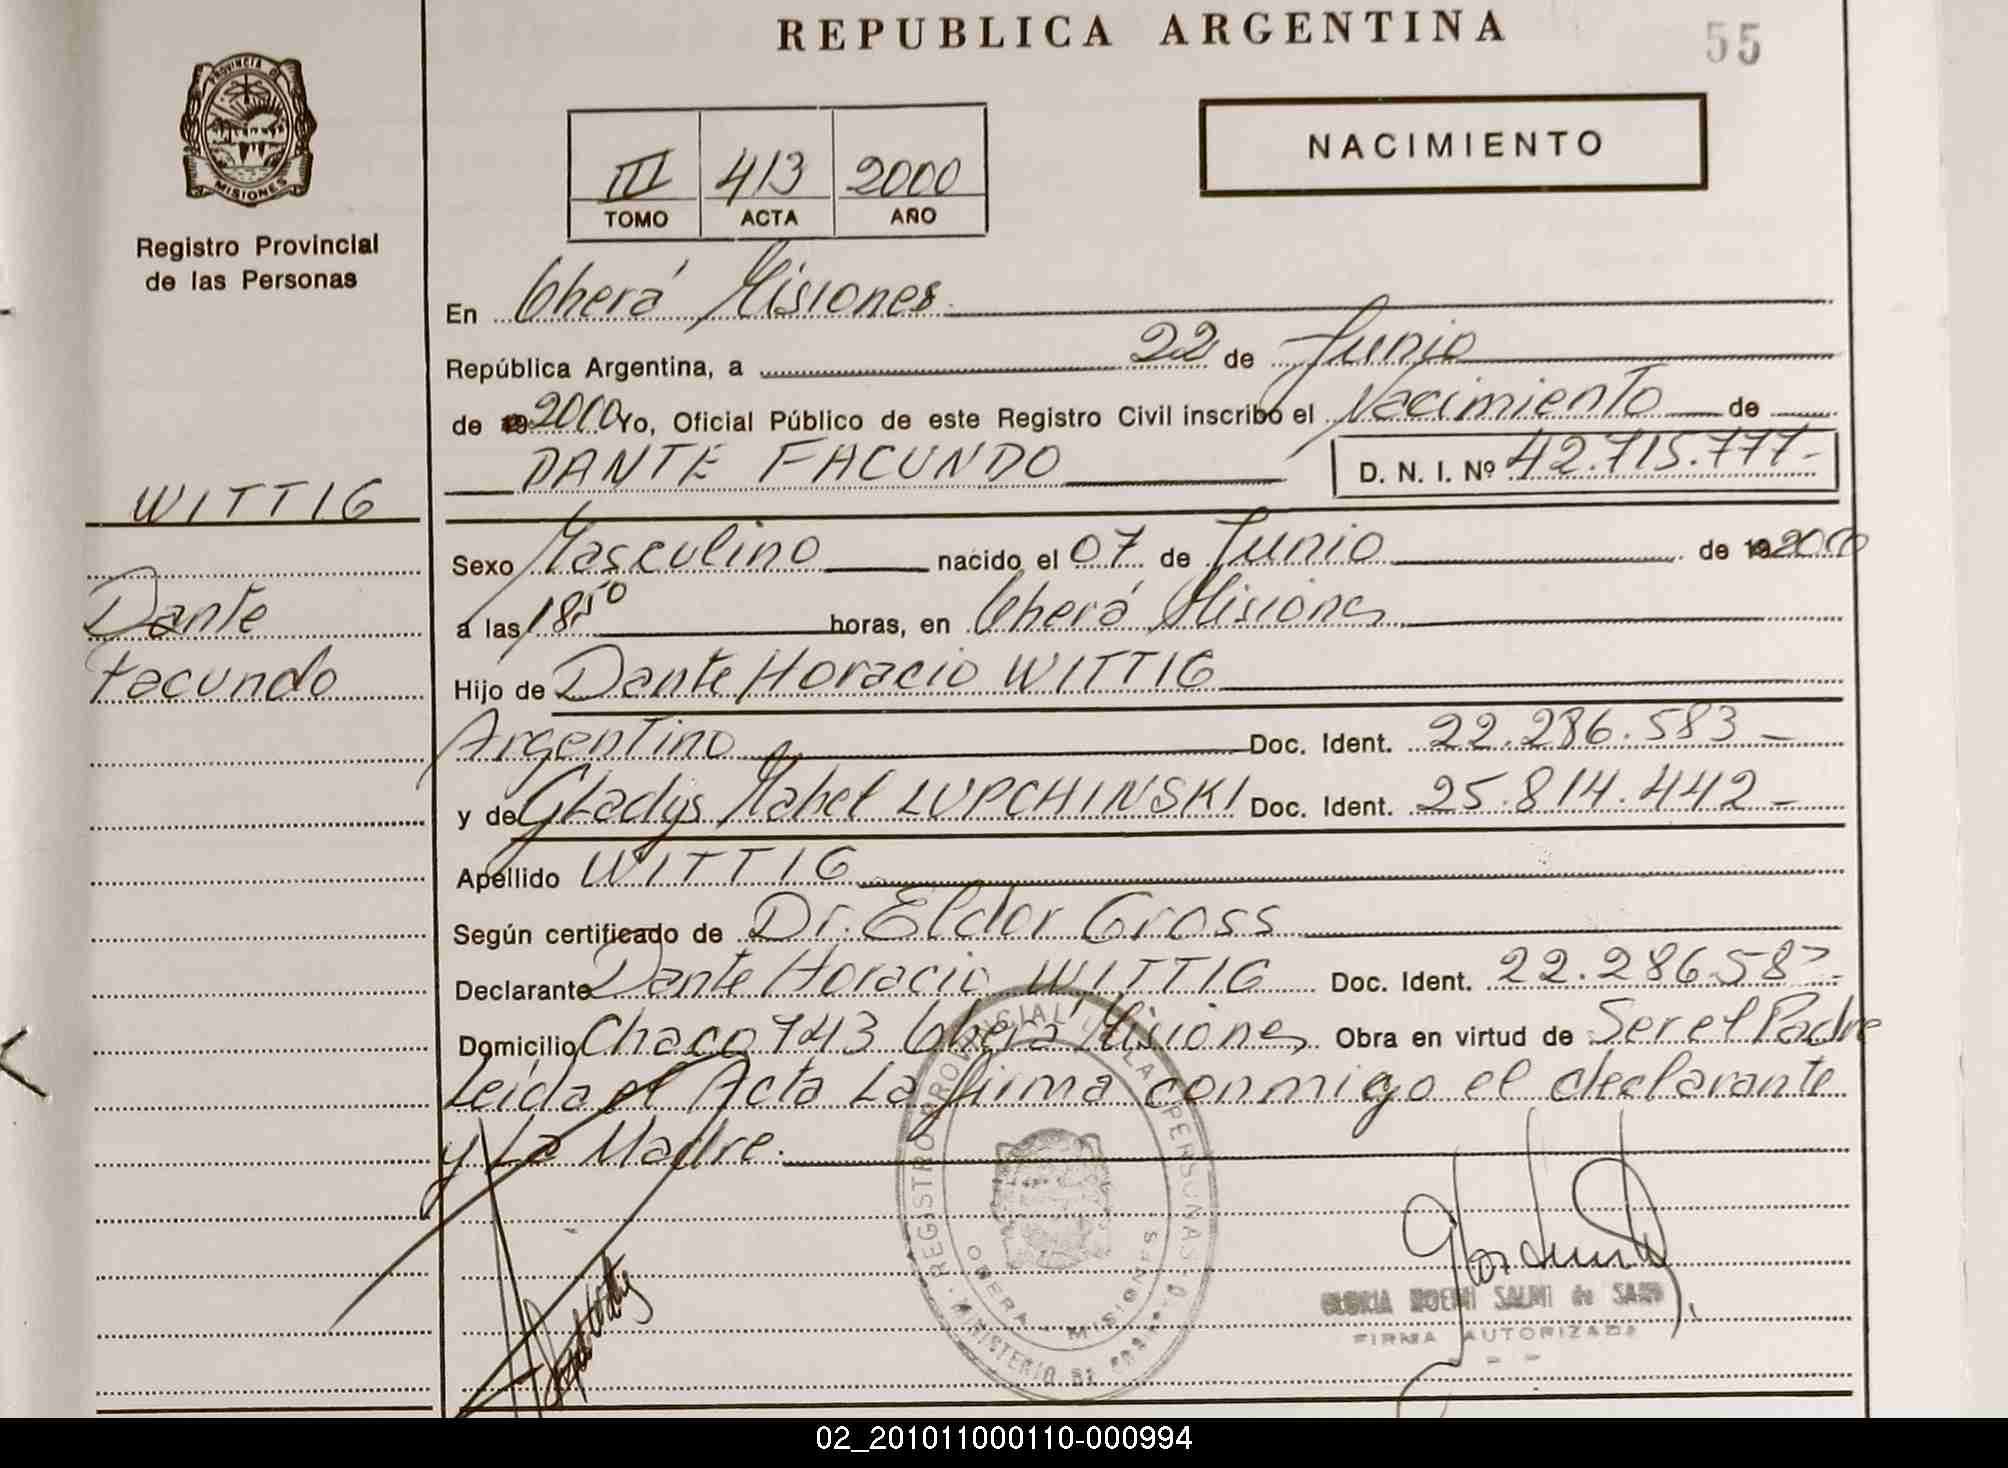 REPUBLICA ARGENTINA
55
PROVINCIA DE
MISIONES
Registro Provincial
de las Personas
III 413 2000
TOMO ACTA AÑO
NACIMIENTO
En Oberá Misiones
República Argentina, a 22 de Junio
de 19 2000 Yo, Oficial Público de este Registro Civil inscribo el Nacimiento de
DANTE FACUNDO D. N. I. Nº 42.715.777-
WITTIG
Dante
Facundo
Sexo Masculino nacido el 07 de Junio de 19 2000
a las 18,50 horas, en Oberá Misiones
Hijo de Dante Horacio WITTIG
Argentino Doc. Ident. 22.286.583-
y de Gladys Mabel LUPCHINSKI Doc. Ident. 25.814.442-
Apellido WITTIG
Según certificado de Dr. Eldor Gross
Declarante Dante Horacio WITTIG Doc. Ident. 22.286.583-
Domicilio Chaco 743 Oberá Misiones Obra en virtud de Ser el Padre
Leída el Acta La firma conmigo el declarante
y La Madre.
REGISTRO PROVINCIAL DE LAS PERSONAS
OBERA - MISIONES
MINISTERIO DE
GLORIA NOEMI SALMI de
FIRMA AUTORIZADA
02_201011000110-000994